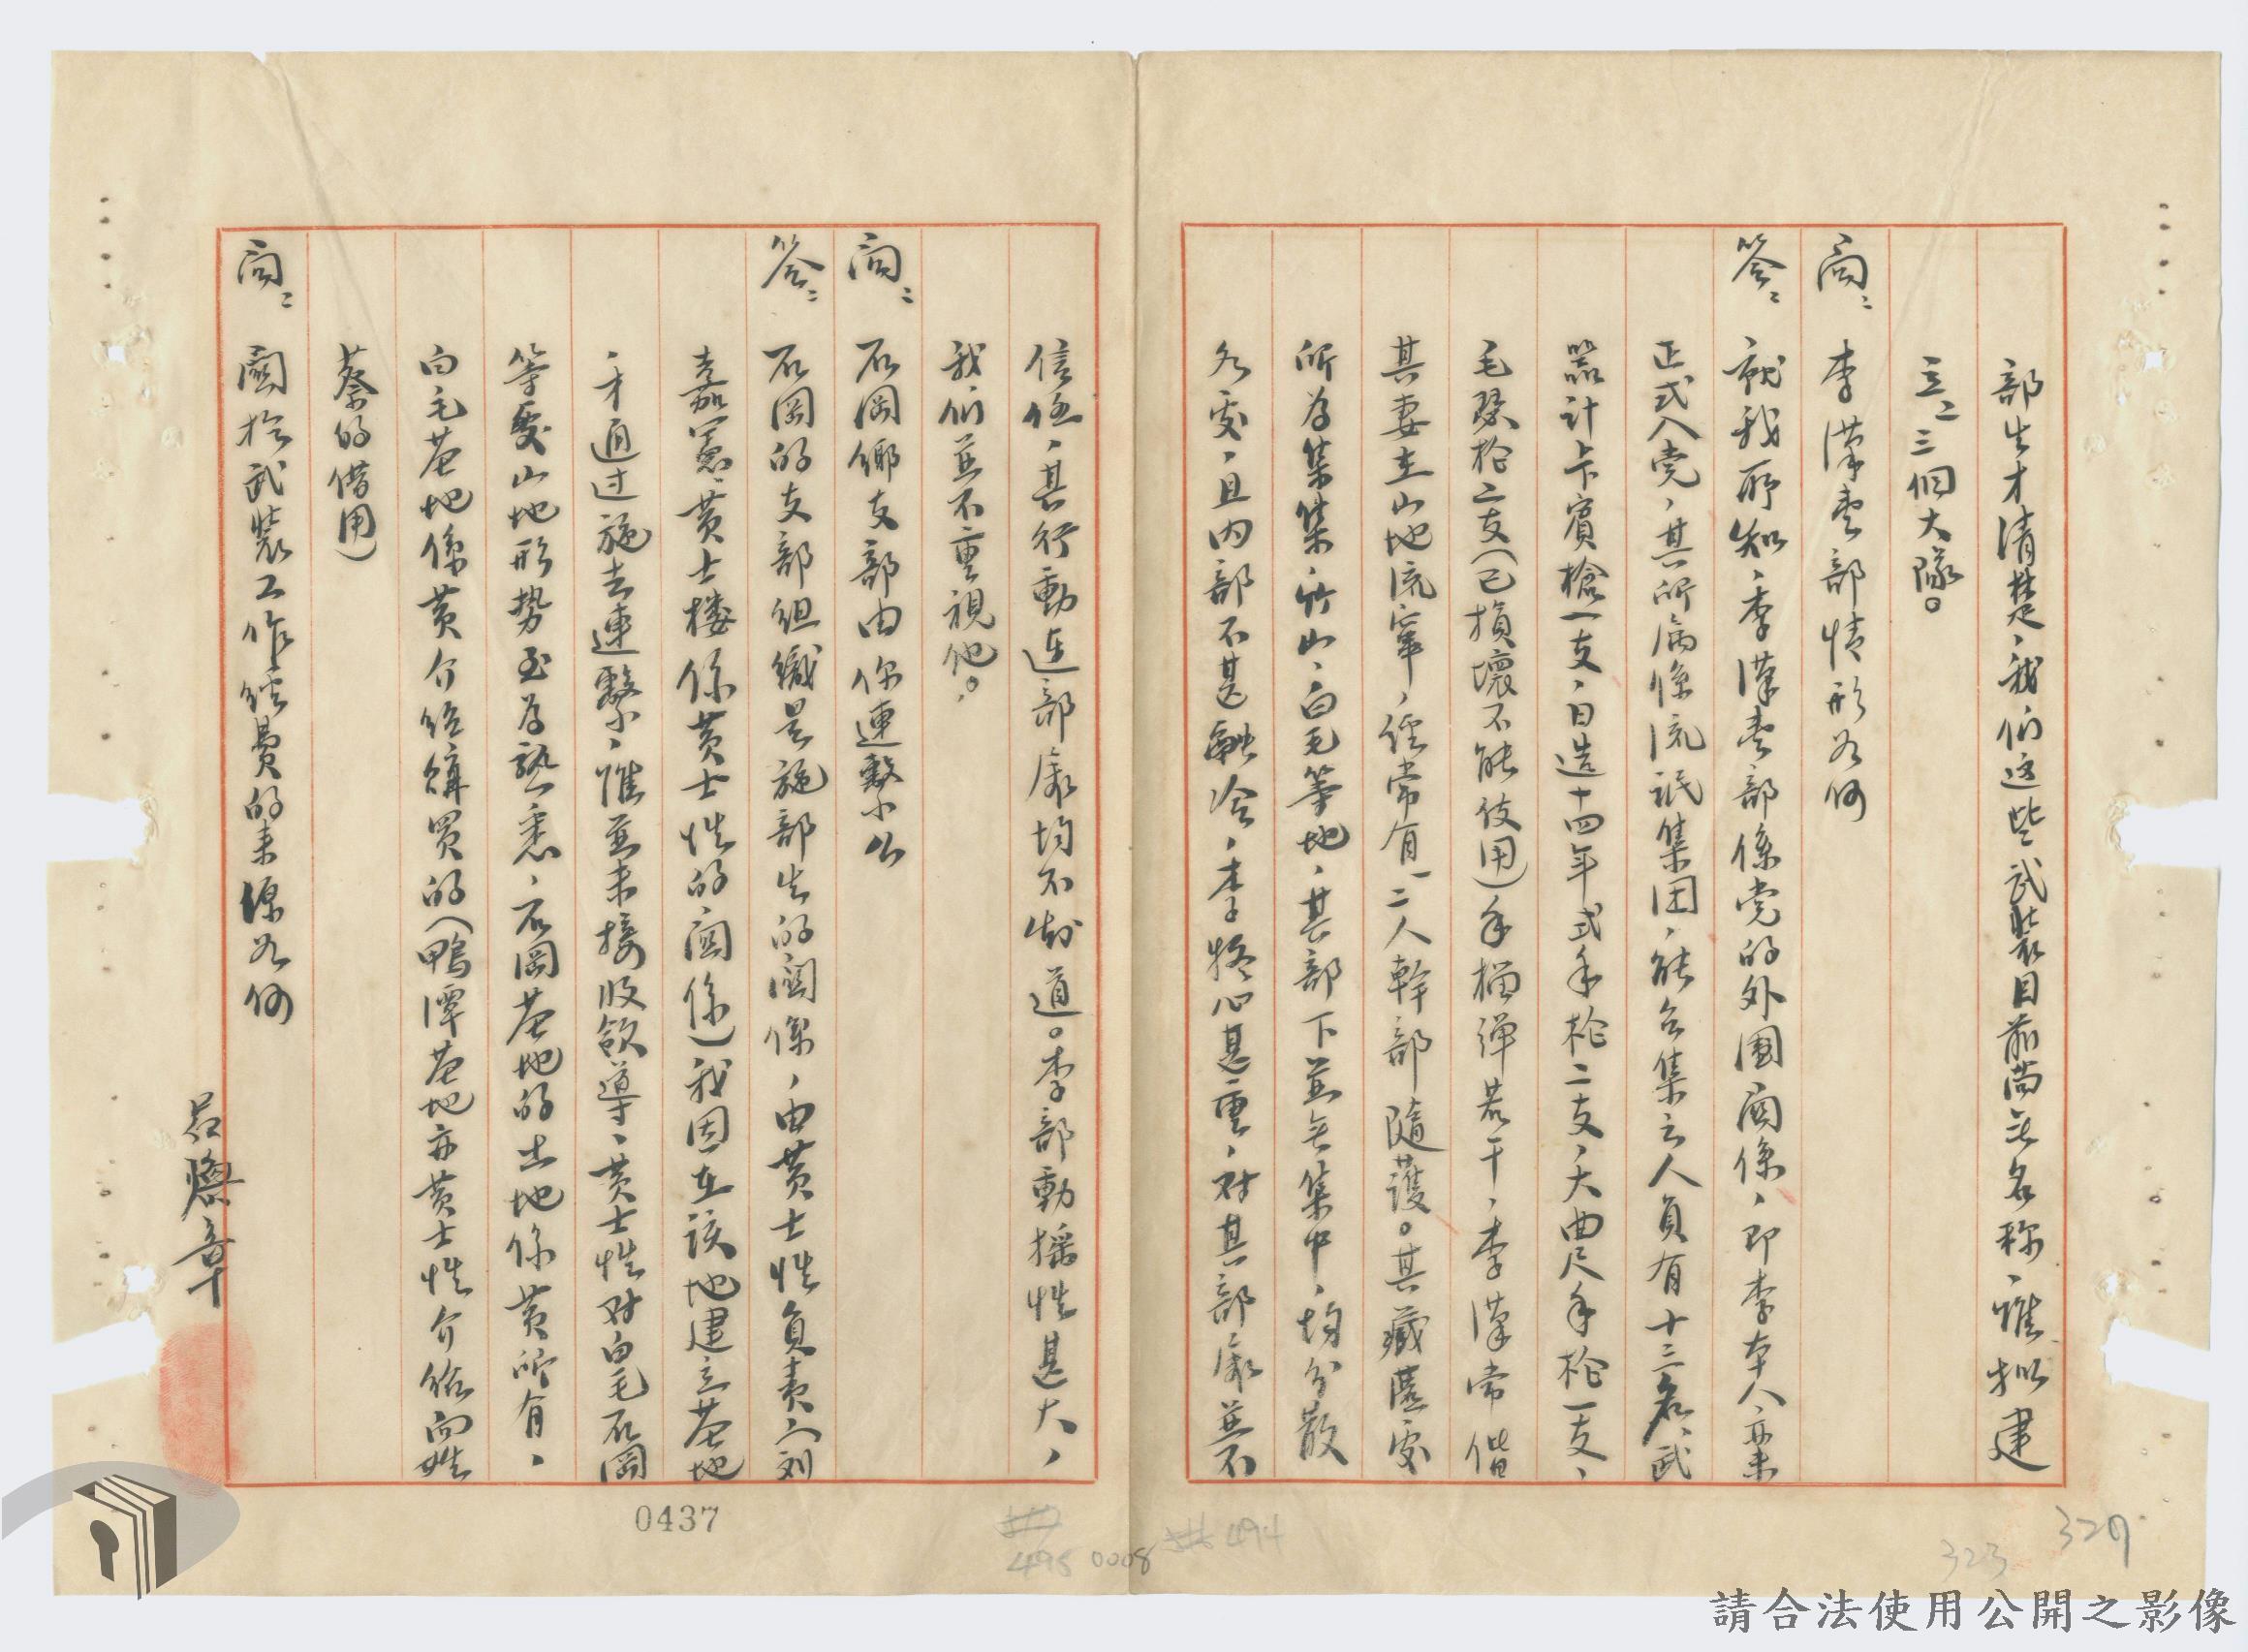 部生才清楚、我们这些武裝目前尚無名称、惟拟建
立二三個大隊。
问：李漢堂部情形为何
答：就我所知、李漢堂部係党的外圍関係、即李本人亦未
正式入党、其所属係流氓集团、能召集之人員有十三名、武
器計卡賓槍一支、日造十四年式手枪二支、大曲尺手枪一支、
毛瑟枪二支（已損壞不能使用）手榴弹若干、李漢常偕
其妻在山地流窜、经常有一二人幹部隨護。其藏匿處
所为集集、竹山、白毛等地、其部下並無集中、均分散
各處、且内部不甚融洽、李疑心甚重、对其部属並不
信任、其行動連部属均不知道。李部動摇性甚大、
我们並不重視他。
问：石岡鄉支部由你連繫么
答：石岡的支部组織是施部生的関係、由黄士性負責（刘
嘉憲、黄士樓係黄士性的関係）我因在該地建立基地
才通过施去連繫、惟並未接收領導、黄士性对白毛石岡
等處山地形势至为熟悉、石岡基地的土地係黄所有、
白毛基地係黄介绍購買的（鴨潭基地亦黄士性介绍向姓
蔡的借用）
问：関於武裝工作经費的来源为何
0437
495
0008
494
323
327
請合法使用公開之影像